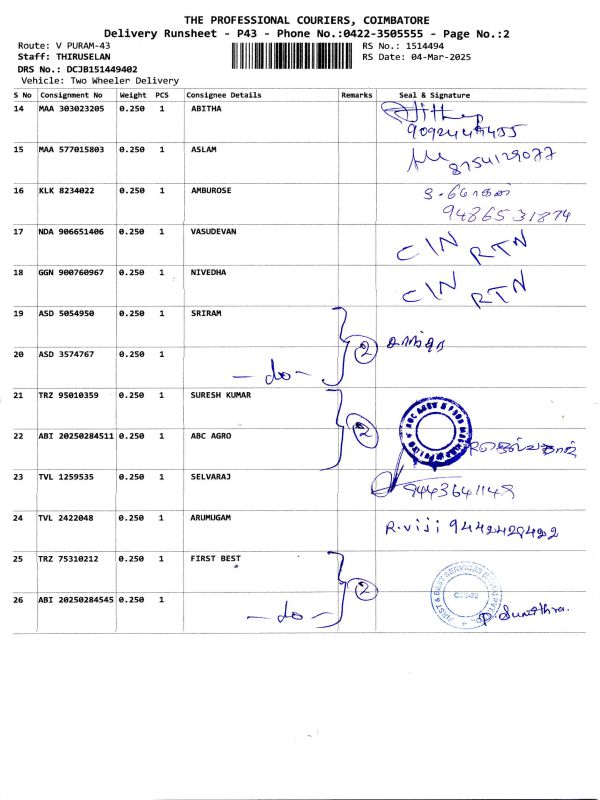 THE PROFESSIONAL COURIERS, COIMBATORE
Delivery Runsheet - P43 - Phone No.:0422-3505555 - Page No.:2
Route: V PURAM-43 RS No.: 1514494
Staff: THIRUSELAN RS Date: 04-Mar-2025
DRS No.: DCJB151449402
Vehicle: Two Wheeler Delivery
S No Consignment No Weight PCS Consignee Details Remarks Seal & Signature
14 MAA 303023205 0.250 1 ABITHA
15 MAA 577015803 0.250 1 ASLAM 8754129077
16 KLK 8234022 0.250 1 AMBUROSE
9486531874
17 NDA 906651406 0.250 1 VASUDEVAN CIN RTN
18 GGN 900760967 0.250 1 NIVEDHA CIN RTN
19 ASD 5054950 0.250 1 SRIRAM
2
20 ASD 3574767 0.250 1 -do-
21 TRZ 95010359 0.250 1 SURESH KUMAR
2
22 ABI 20250284511 0.250 1 ABC AGRO
23 TVL 1259535 0.250 1 SELVARAJ 9443641149
24 TVL 2422048 0.250 1 ARUMUGAM R.viji 9442429422
25 TRZ 75310212 0.250 1 FIRST BEST
2
26 ABI 20250284545 0.250 1 -do- P. Sunithra.